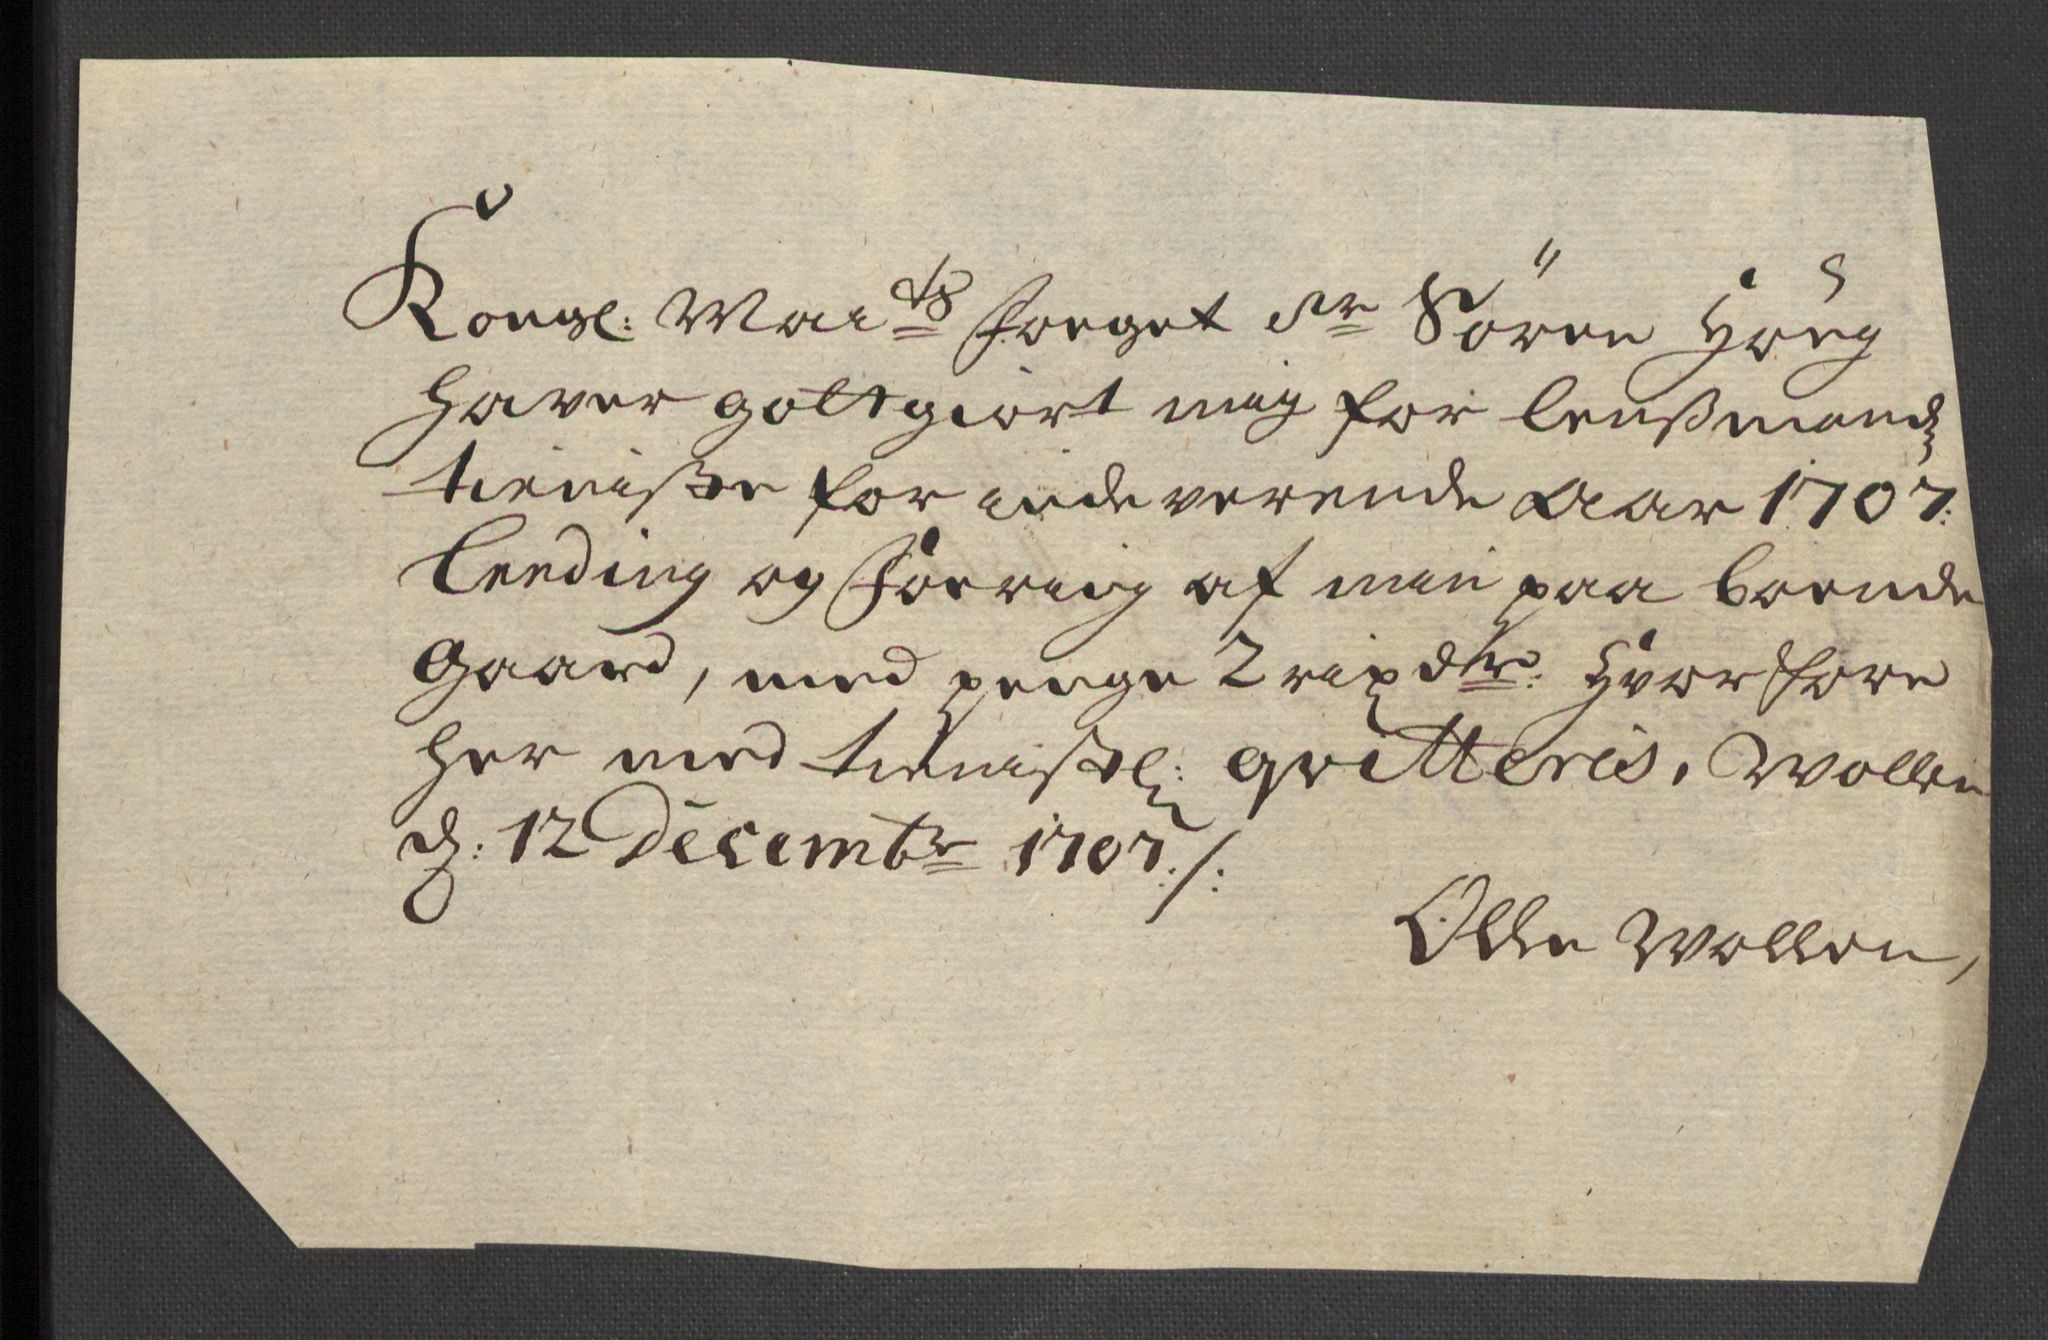 Kongl: Maits Foeget Sr Sören Höeg
haver gottgiort mig for lenßmandz
tieniste for inde verende Aar 1707.
Leeding og Foering af min paa boende
Gaard, med penge 2 rixdr: Hvorfore
her med tienistl: qvitteris, Wollen
d: 12 Decembr 1707./.
Olle Wollen,